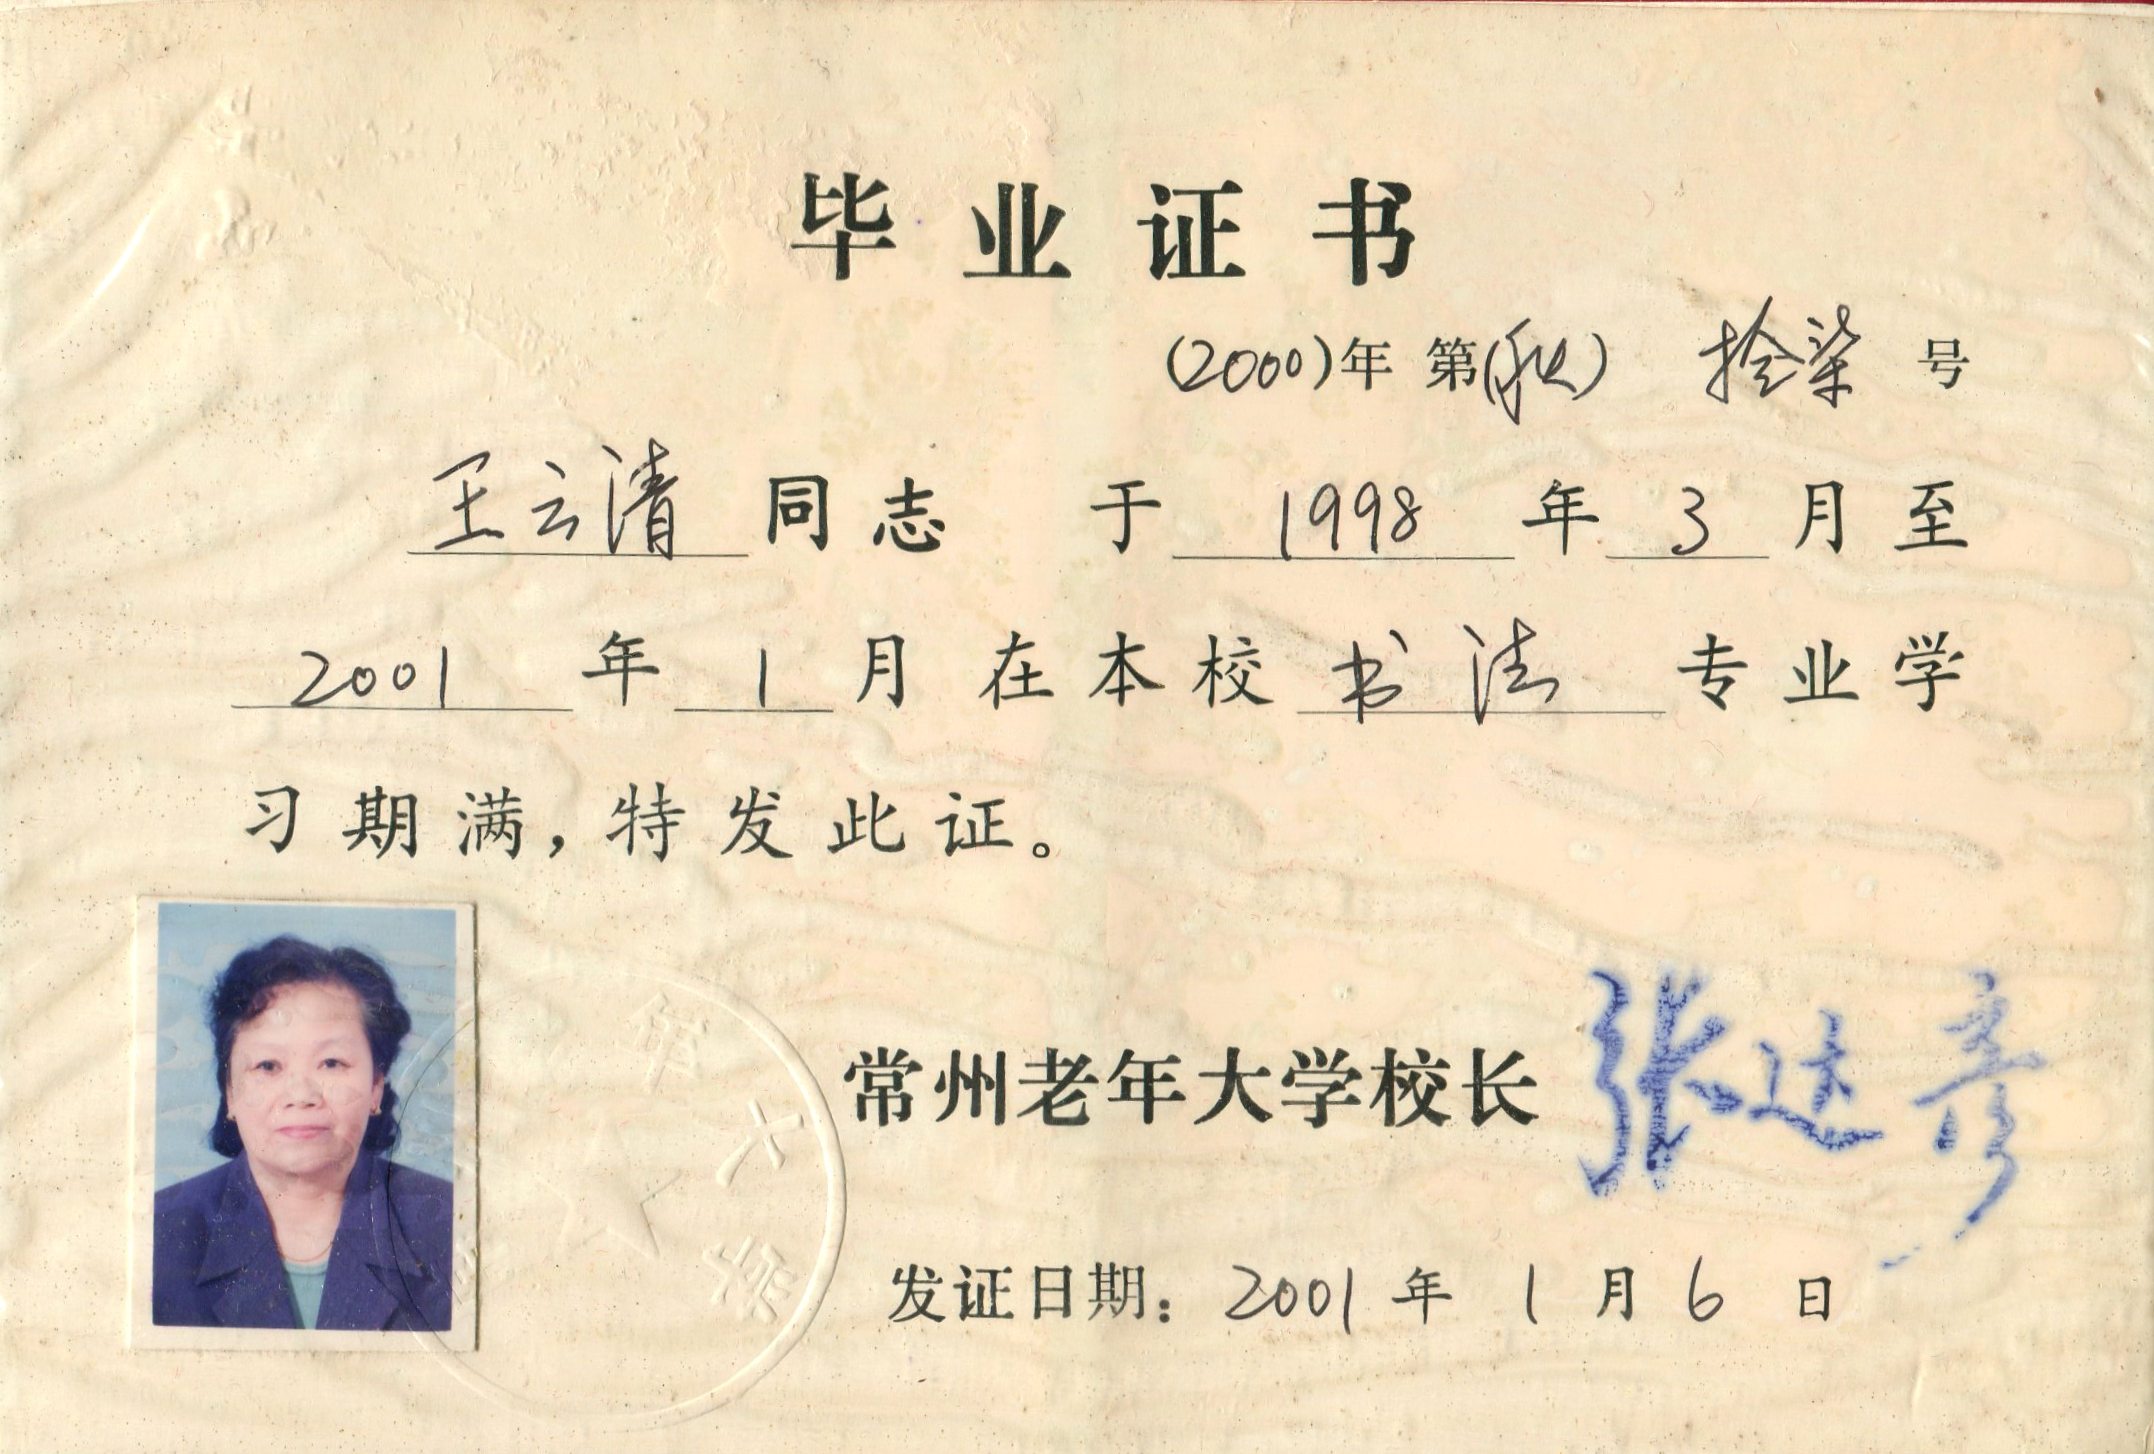 毕业证书
(2000)年 第(秋) 拾柒 号
王云清 同志 于 1998 年 3 月至
2001 年 1 月在本校 书法 专业学
习期满，特发此证。
常州老年大学校长 张达彦
发证日期：2001 年 1 月 6 日
年大学